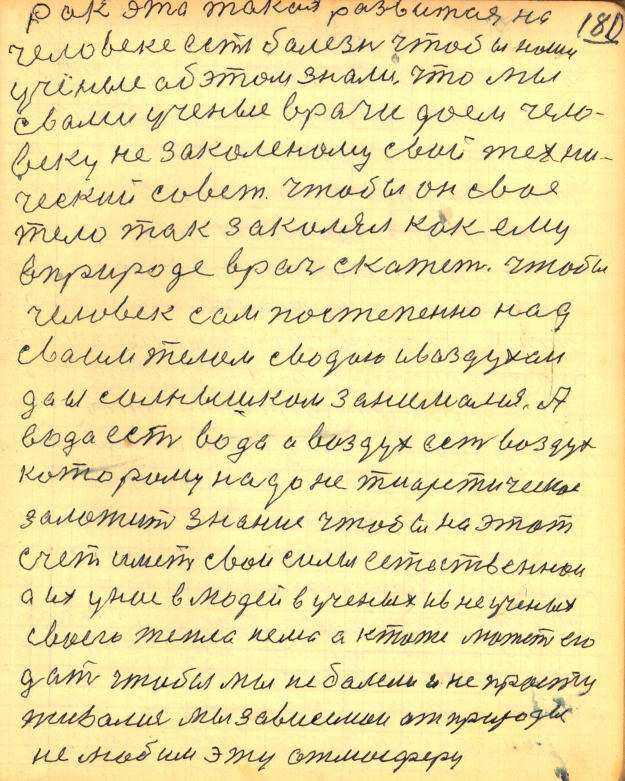 рак эта такая развитая на 180
человеке есть балезн чтобы наши
учёные обэтом знали, что мы
свами ученые врачи доем чело-
веку не закаленому свой техни-
ческий совет. чтобы он свое
тело так закалял как ему
вприроде врач скажет. чтобы
человек сам постепенно над
сваим телом сводою ивоздухам
да и солнышком занимался. А
вода есть вода а воздух есть воздух
которому надо не тиаретическое
заложит знание чтобы на этот
счет имет свои силы естественнои
а их унас в людей в ученых ив не ученых
своего тепла нема а ктоже может его
дат чтобы мы не балели и не просту
живалися мы зависимои от природы
не любим эту атмосферу